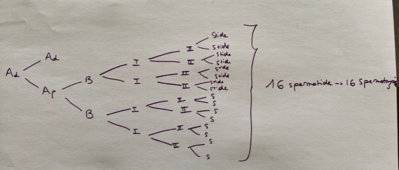 Stide
I
Stide
Ad
I
Stide
I
Stide
Stide
II
Stide
Ad
B
I
II
Stide
Stide
Ap
16 spermatide → 16
I
I
S
S
II
S
B
S
I
I
S
S
II
S
S